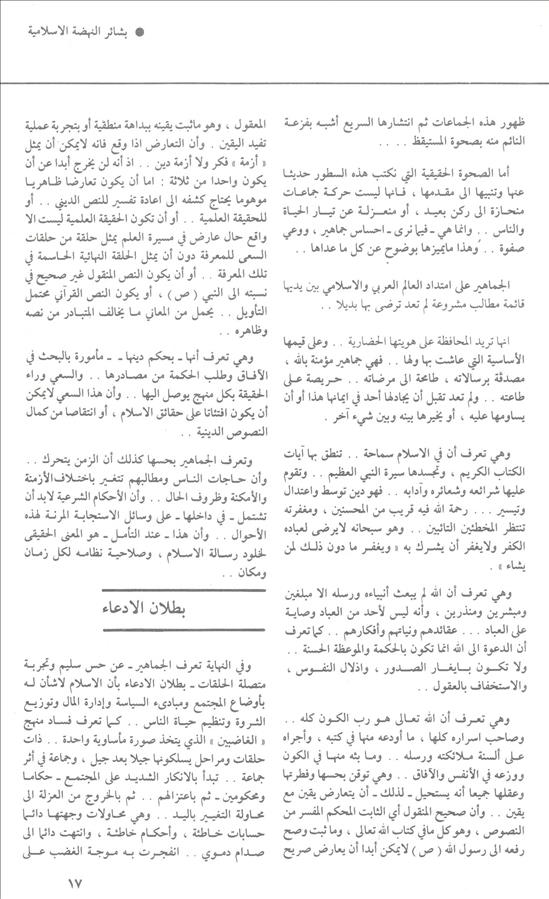 ● بشائر النهضة الاسلامية
ظهور هذه الجماعات ثم انتشارها السريع أشبه بفزعة
النائم منه بصحوة المستيقظ . . . .
أما الصحوة الحقيقية التي نكتب هذه السطور حديثا
عنها وتنبيها الى مقدمها ، فانها ليست حركة جماعات
منحازة الى ركن بعيد ، أو منعزلة عن تيار الحياة
والناس . . وانما هي ـ فيما نرى ـ احساس جماهير ، ووعي
صفوة . . وهذا مايميزها بوضوح عن كل ما عداها . .
الجماهير على امتداد العالم العربي والاسلامي بين يديها
قائمة مطالب مشروعة لم تعد ترضى بها بديلا . .
انها تريد المحافظة على هويتها الحضارية . . وعلى قيمها
الأساسية التي عاشت بها ولها . . فهي جماهير مؤمنة بالله ،
مصدقة برسالاته ، طامحة الى مرضاته . . حريصة على
طاعته . . ولم تعد تقبل أن يجادلها أحد في ايمانها هذا أو أن
يساومها عليه ، أو يخيرها بينه وبين شيء آخر .
وهي تعرف أن في الاسلام سماحة . . تنطق بها آيات
الكتاب الكريم ، وتجسدها سيرة النبي العظيم . . وتقوم
عليها شرائعه وشعائره وآدابه . . فهو دين توسط واعتدال
وتيسير . . . رحمة الله فيه قريب من المحسنين ، ومغفرته
تنتظر المخطئين التائبين . . وهو سبحانه لايرضى لعباده
الكفر ولايغفر أن يشرك به « ويغفر ما دون ذلك لمن
يشاء » .
وهي تعرف أن الله لم يبعث أنبياءه ورسله الا مبلغين
ومبشرين ومنذرين ، وأنه ليس لأحد من العباد وصاية
على العباد . . . عقائدهم ونياتهم وأفكارهم . . كما تعرف
أن الدعوة الى الله انما تكون بالحكمة والموعظة الحسنة . .
ولا تكون بايغار الصدور ، واذلال النفوس ،
والاستخفاف بالعقول . .
وهي تعرف أن الله تعالى هو رب الكون كله . .
وصاحب اسراره كلها ، ما أودعه منها في كتبه ، وأجراه
على ألسنة ملائكته ورسله . . وما بثه منها في الكون
ووزعه في الأنفس والآفاق . . وهي توقن بحسها وفطرتها
وعقلها جميعا أنه يستحيل ـ لذلك ـ أن يتعارض يقين مع
يقين . . وأن صحيح المنقول أي الثابت المحكم المفسر من
النصوص ، وهو كل مافي كتاب الله تعالى ، وما ثبت وصح
رفعه الى رسول الله ( ص ) لايمكن أبدا أن يعارض صريح
المعقول ، وهو ماثبت يقينه ببداهة منطقية أو بتجربة عملية
تفيد اليقين . وأن التعارض اذا وقع فانه لايمكن أن يمثل
« أزمة » فكر ولا أزمة دين . . اذ أنه لن يخرج أبدا عن أن
يكون واحدا من ثلاثة : اما أن يكون تعارضا ظاهريا
موهوما يحتاج كشفه الى اعادة تفسير للنص الديني . . أو
للحقيقة العلمية . . أو أن تكون الحقيقة العلمية ليست الا
واقع حال عارض في مسيرة العلم يمثل حلقة من حلقات
السعي للمعرفة دون أن يمثل الحلقة النهائية الحاسمة في
تلك المعرفة . . أو أن يكون النص المنقول غير صحيح في
نسبته الى النبي ( ص ) ، أو يكون النص القرآني محتمل
التأويل . . يحمل من المعاني ما يخالف المتبادر من نصه
وظاهره . .
وهي تعرف أنها ـ بحكم دينها ـ مأمورة بالبحث في
الآفاق وطلب الحكمة من مصادرها . . والسعي وراء
الحقيقة بكل منهج يوصل اليها . . وأن هذا السعي لايمكن
أن يكون افتئاتا على حقائق الاسلام ، أو انتقاصا من كمال
النصوص الدينية . .
وتعرف الجماهير بحسها كذلك أن الزمن يتحرك . .
وأن حاجات الناس ومطالبهم تتغير باختلاف الأزمنة
والأمكنة وظروف الحال . . وأن الأحكام الشرعية لابد أن
تشتمل ـ في داخلها ـ على وسائل الاستجابة المرنة لهذه
الأحوال . . وأن هذا ـ عند التأمل ـ هو المعنى الحقيقي
لخلود رسالة الاسلام ، وصلاحية نظامه لكل زمان
ومكان . .
بطلان الادعاء
وفي النهاية تعرف الجماهير ـ عن حس سليم وتجربة
متصلة الحلقات ـ بطلان الادعاء بأن الاسلام لاشأن له
بأوضاع المجتمع ومبادىء السياسة وإدارة المال وتوزيع
الثروة وتنظيم حياة الناس . . كما تعرف فساد منهج
« الغاضبين » الذي يتخذ صورة مأساوية واحدة . . ذات
حلقات ومراحل يسلكونها جيلا بعد جيل ، وجماعة في أثر
جماعة . . تبدأ بالانكار الشديد على المجتمع ـ حكاما
ومحكومين ـ ثم باعتزالهم . . ثم بالخروج من العزلة الى
محاولة التغيير باليد . . وهي محاولات وجهتها دائما
حسابات خاطئة ، وأحكام خاطئة ، وانتهت دائما الى
صدام دموي . . انفجرت به موجة الغضب على
١٧